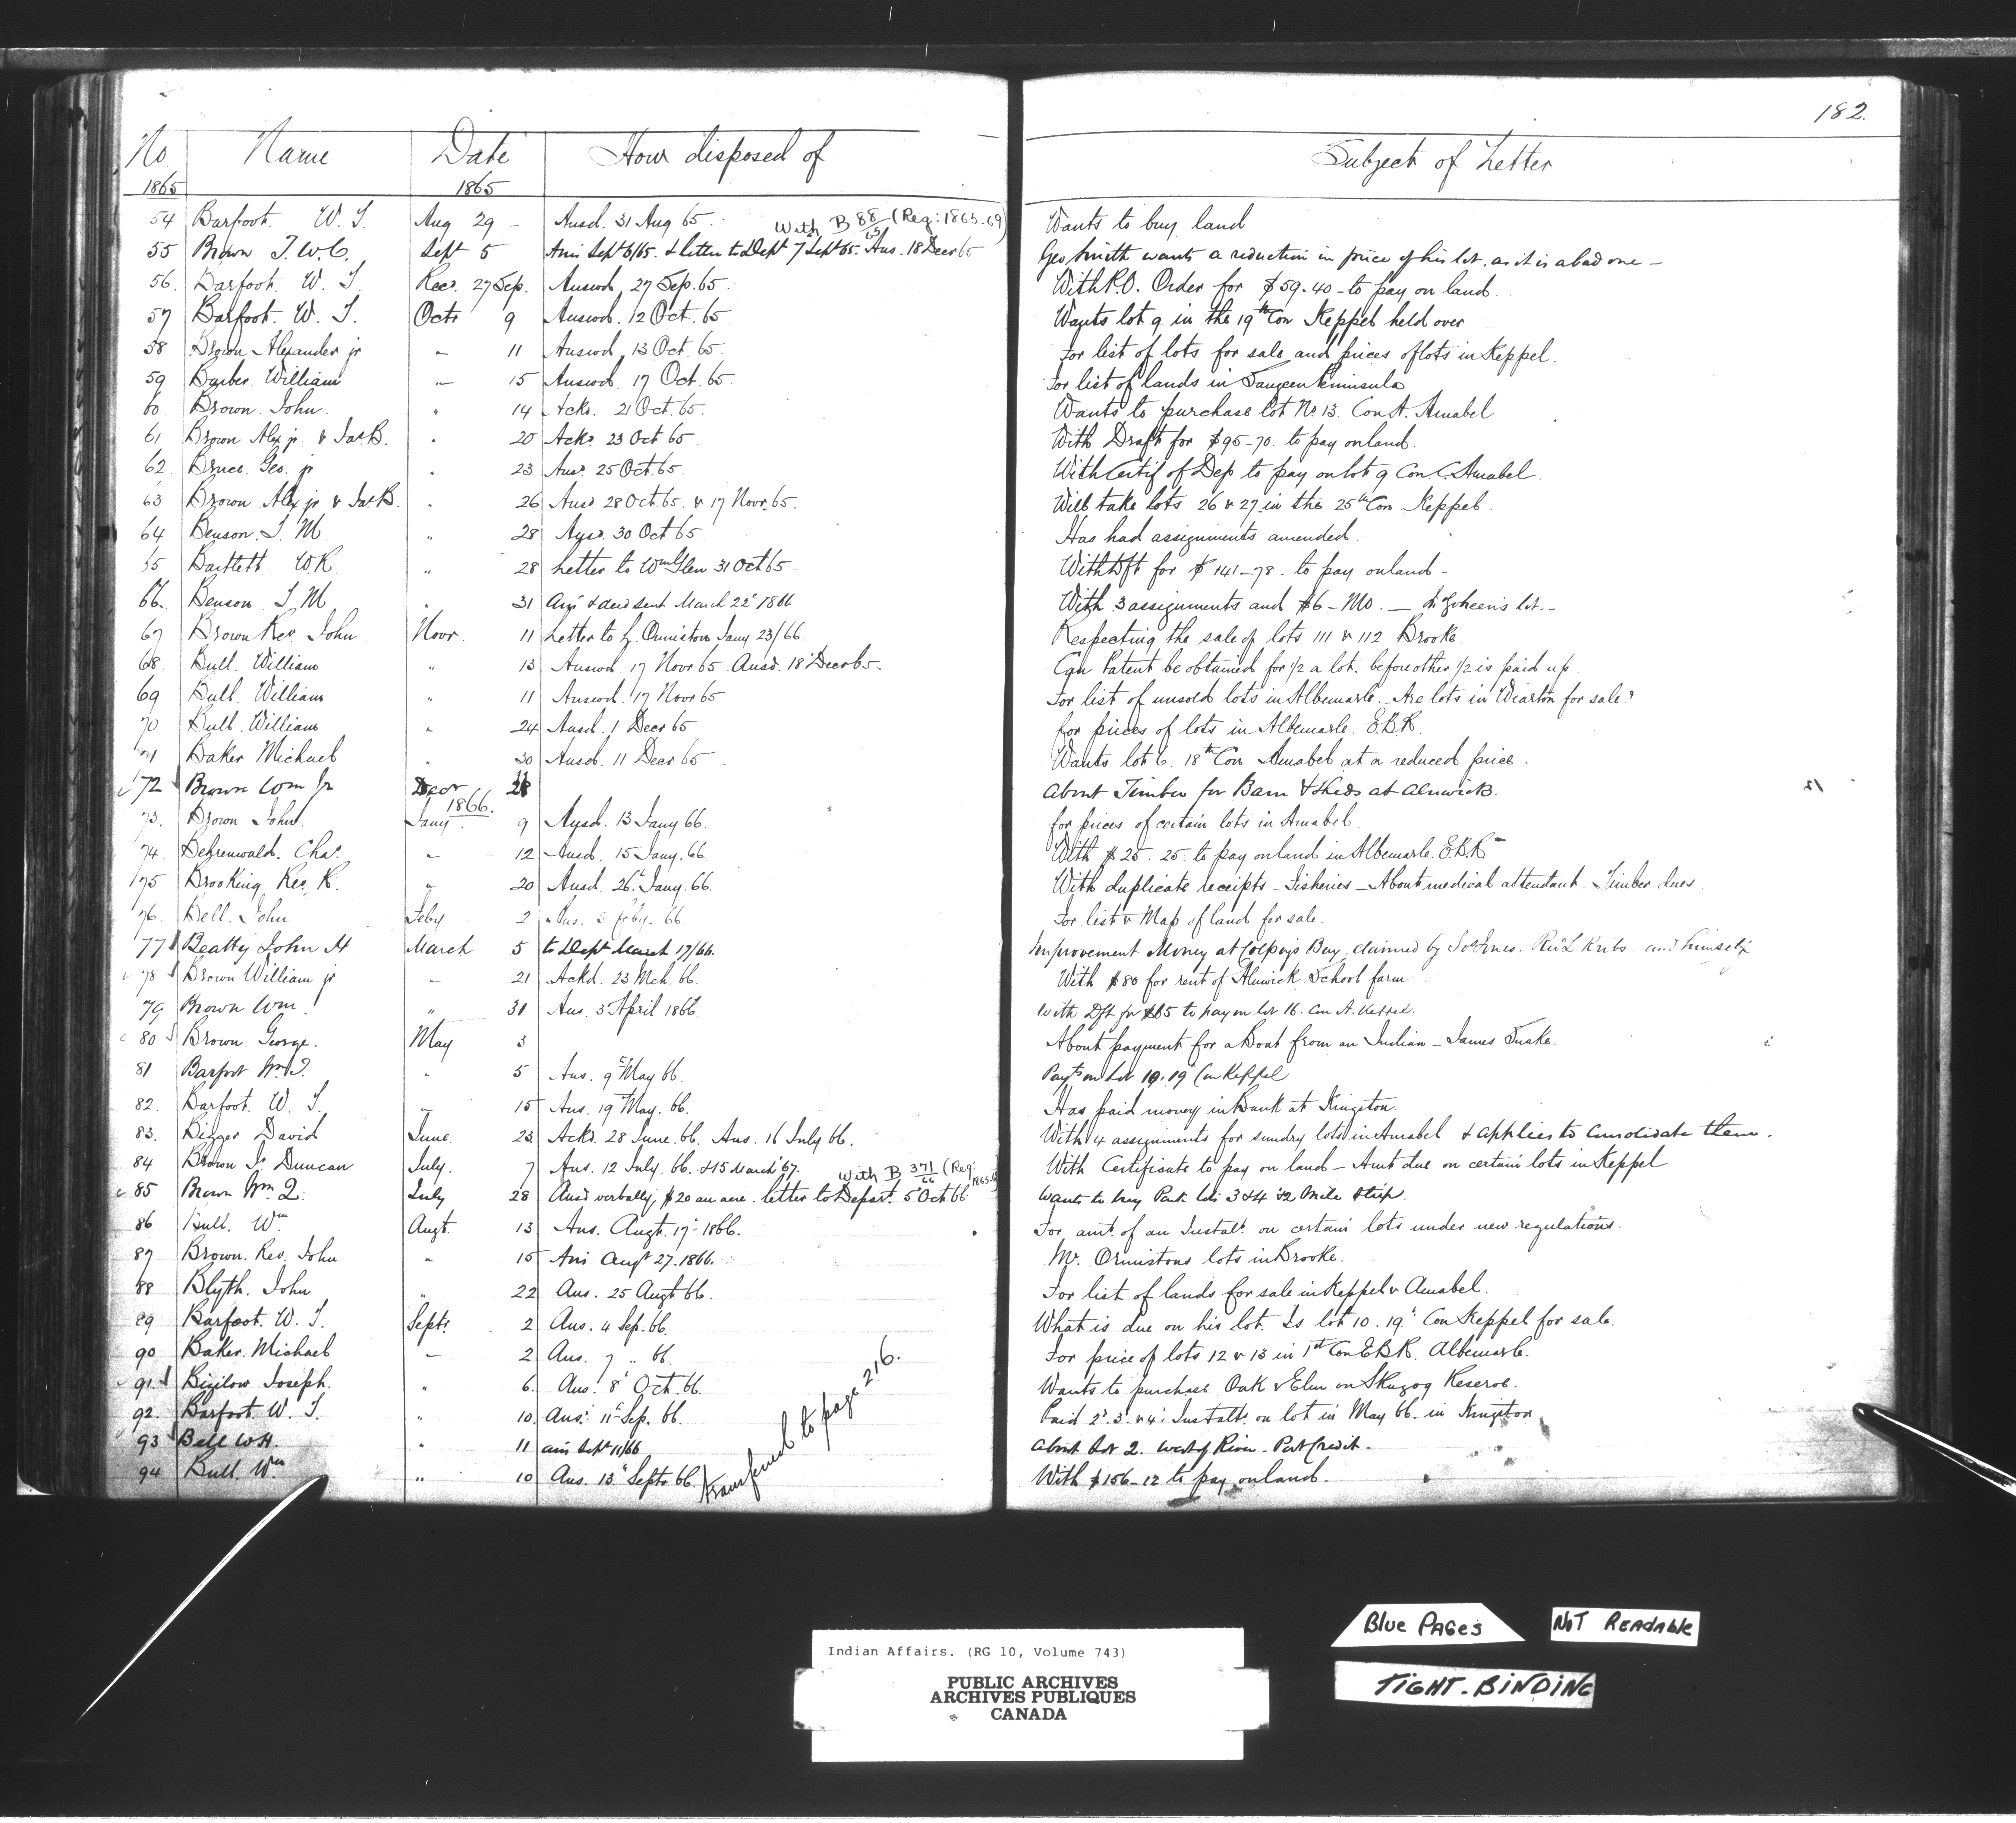 182.
No. Name Date How disposed of Subject of Letter
1865 1865
54 Barfoot. W. T. Aug 29 - Ansd. 31 Aug 65. Wants to buy land
With B 88/65 (Reg: 1865-69)
55 Brown T. W. C. Sept 5 Ans Sept 6/65. & letter to Dept 7 Sept 65. Ans. 18 Decr 65 Geo Smith wants a reduction in price of his lot. as it is a bad one -
56. Barfoot. W. T. Recd. 27 Sep. Answd. 27 Sep. 65. With P.O. Order for $59.40 - to pay on land.
57 Barfoot. W. T. Octr 9 Answd. 12 Oct. 65 Wants lot 9 in the 19th Con Keppel held over
58 Brown Alexander jr " 11 Answd. 13 Oct. 65. For list of lots for sale and prices of lots in Keppel.
59 Barber. William " 15 Answd. 17 Oct. 65. For list of lands in Saugeen Peninsula
60. Brown. John. " 14 Ackd. 21 Oct. 65. Wants to purchase lot No 13. Con A. Amabel
61 Brown Alex jr. & Jas B. " 20 Ackd. 23 Oct 65. With Draft for $95-70. to pay on land.
62. Bruce. Geo. jr " 23 Ansd. 25 Oct. 65. With Certif of Dep to pay on lot 9 Con. C. Amabel.
63 Brown Alex jr & Jas B. " 26 Ansd. 28 Oct. 65. & 17 Novr. 65. Will take lots 26 & 27 in the 25th Con. Keppel.
64 Benson. T. M. " 28 Ansd. 30 Oct 65 Has had assignments amended.
65 Bartlett W R. " 28 Letter to Wm Glen 31 Oct 65 With Dft for $141-78 - to pay on land -
66. Benson T. M " 31 Ans & deed sent March 22d 1866 With 3 assignments and $6 - MO. - lot. -
67 Brown Rev John Novr. 11 Letter to G. Ormiston Jany 23/66. Respecting the sale of lots 111 & 112 Brooke.
68. Bull. William " 13 Answd. 17 Novr 65 Ansd. 18 Decr 65. Can Patent be obtained for 1/2 a lot. before other 1/2 is paid up.
69 Bull. William " 11 Answd. 17 Novr 65 For list of unsold lots in Albemarle. - Are lots in Wiarton for sale?
70 Bull. William " 24 Ansd. 1 Decr 65 for prices of lots in Albemarle. E.B.R.
71 Baker Michael " 30 Ansd. 11 Decr 65 Wants lot 6. 18th Con Amabel at a reduced price.
72 Brown Wm Jr Decr About Timber for Barn & Sheds at Alnwick.
1866.
73. Brown John. Jany. 9 Ansd. 13 Jany 66. for prices of certain lots in Amabel.
74 Behrenwald. Chas. " 12 Ansd. 15 Jany. 66 With $25.25. to pay on land in Albemarle. E.B.R -
75 Brooking Rev. R. " 20 Ansd. 26th Jany. 66. With duplicate receipts - Fisheries - About medical attendant - Timber dues
76. Bell. John Feby 2 Ans. 5 feby. 66. For list & Map of land for sale.
77 Beatty John H March 5 to Dept March 17/66. Improvement Money at Colpoy's Bay claimed by Jas Ines. Revd L Kribs and himself
78 Brown William jr " 21 Ackd. 23 Mch. 66. With $80 for rent of Alnwick School farm
79 Brown Wm. " 31 Ans. 3 April 1866. With Dft for $65 to pay on lot 16. Con A. Keppel.
80 Brown. George. May 3 About payment for a Boat from an Indian - James Snake.
81 Barfoot Wm T. " 5 Ans. 9th May 66. Payts on Lot 10. 19th Con Keppel
82. Barfoot. W. T. " 15 Ans. 19th May. 66. Has paid money in Bank at Kingston.
83. Bigger David June. 23 Ackd. 28 June. 66. Ans. 16 July 66. With 4 assignments for sundry lots in Amabel & applies to consolidate them.
84 Brown Jr Duncan July. 7 Ans. 12 July. 66. & 15 March '67. With Certificate to pay on land - Amt due on certain lots in Keppel
With B 371/66 (Reg: 1865-6
85 Brown Wm Q. July 28 Ansd verbally, $20 an acre - letter to Depart. 5 Oct 66 Wants to buy Park lots 3 & 4 1/2 Mile Strip.
86 Bull. Wm Augt. 13 Ans. Augt. 17th 1866. For amt. of an Instalt. on certain lots under new regulations.
87 Brown. Rev. John " 15 Ans Augt 27. 1866. Mr. Ormistons lots in Brooke.
88 Blyth. John " 22 Ans. 25 Augt 66. For list of lands for sale in Keppel & Amabel.
89 Barfoot. W. T. Septr. 2 Ans. 4 Sep. 66. What is due on his lot. Is lot 10. 19th Con Keppel for sale.
90 Baker. Michael " 2 Ans. 7 " 66. For price of lots 12 & 13 in 1st Con E B R. Albemarle.
91. Bigelow Joseph. " 6. Ans. 8th Oct. 66. Wants to purchase Oak & Elm on Skugog Reserve.
92. Barfoot. W. T. " 10. Ans. 11th Sep. 66. Paid 2d. 3d. & 4th Instalts. on lot in May 66. in Kingston
93 Bell W H. " 11 ans Sept 11/66 About Lot 2. West of River - Port Credit -
94 Bull. Wm " 10 Ans. 13th Septr 66. With $156-12 to pay on land.
Transferred to page 216.
Blue Pages
Not Readable
Tight-Binding
Indian Affairs. (RG 10, Volume 743)
PUBLIC ARCHIVES
ARCHIVES PUBLIQUES
CANADA